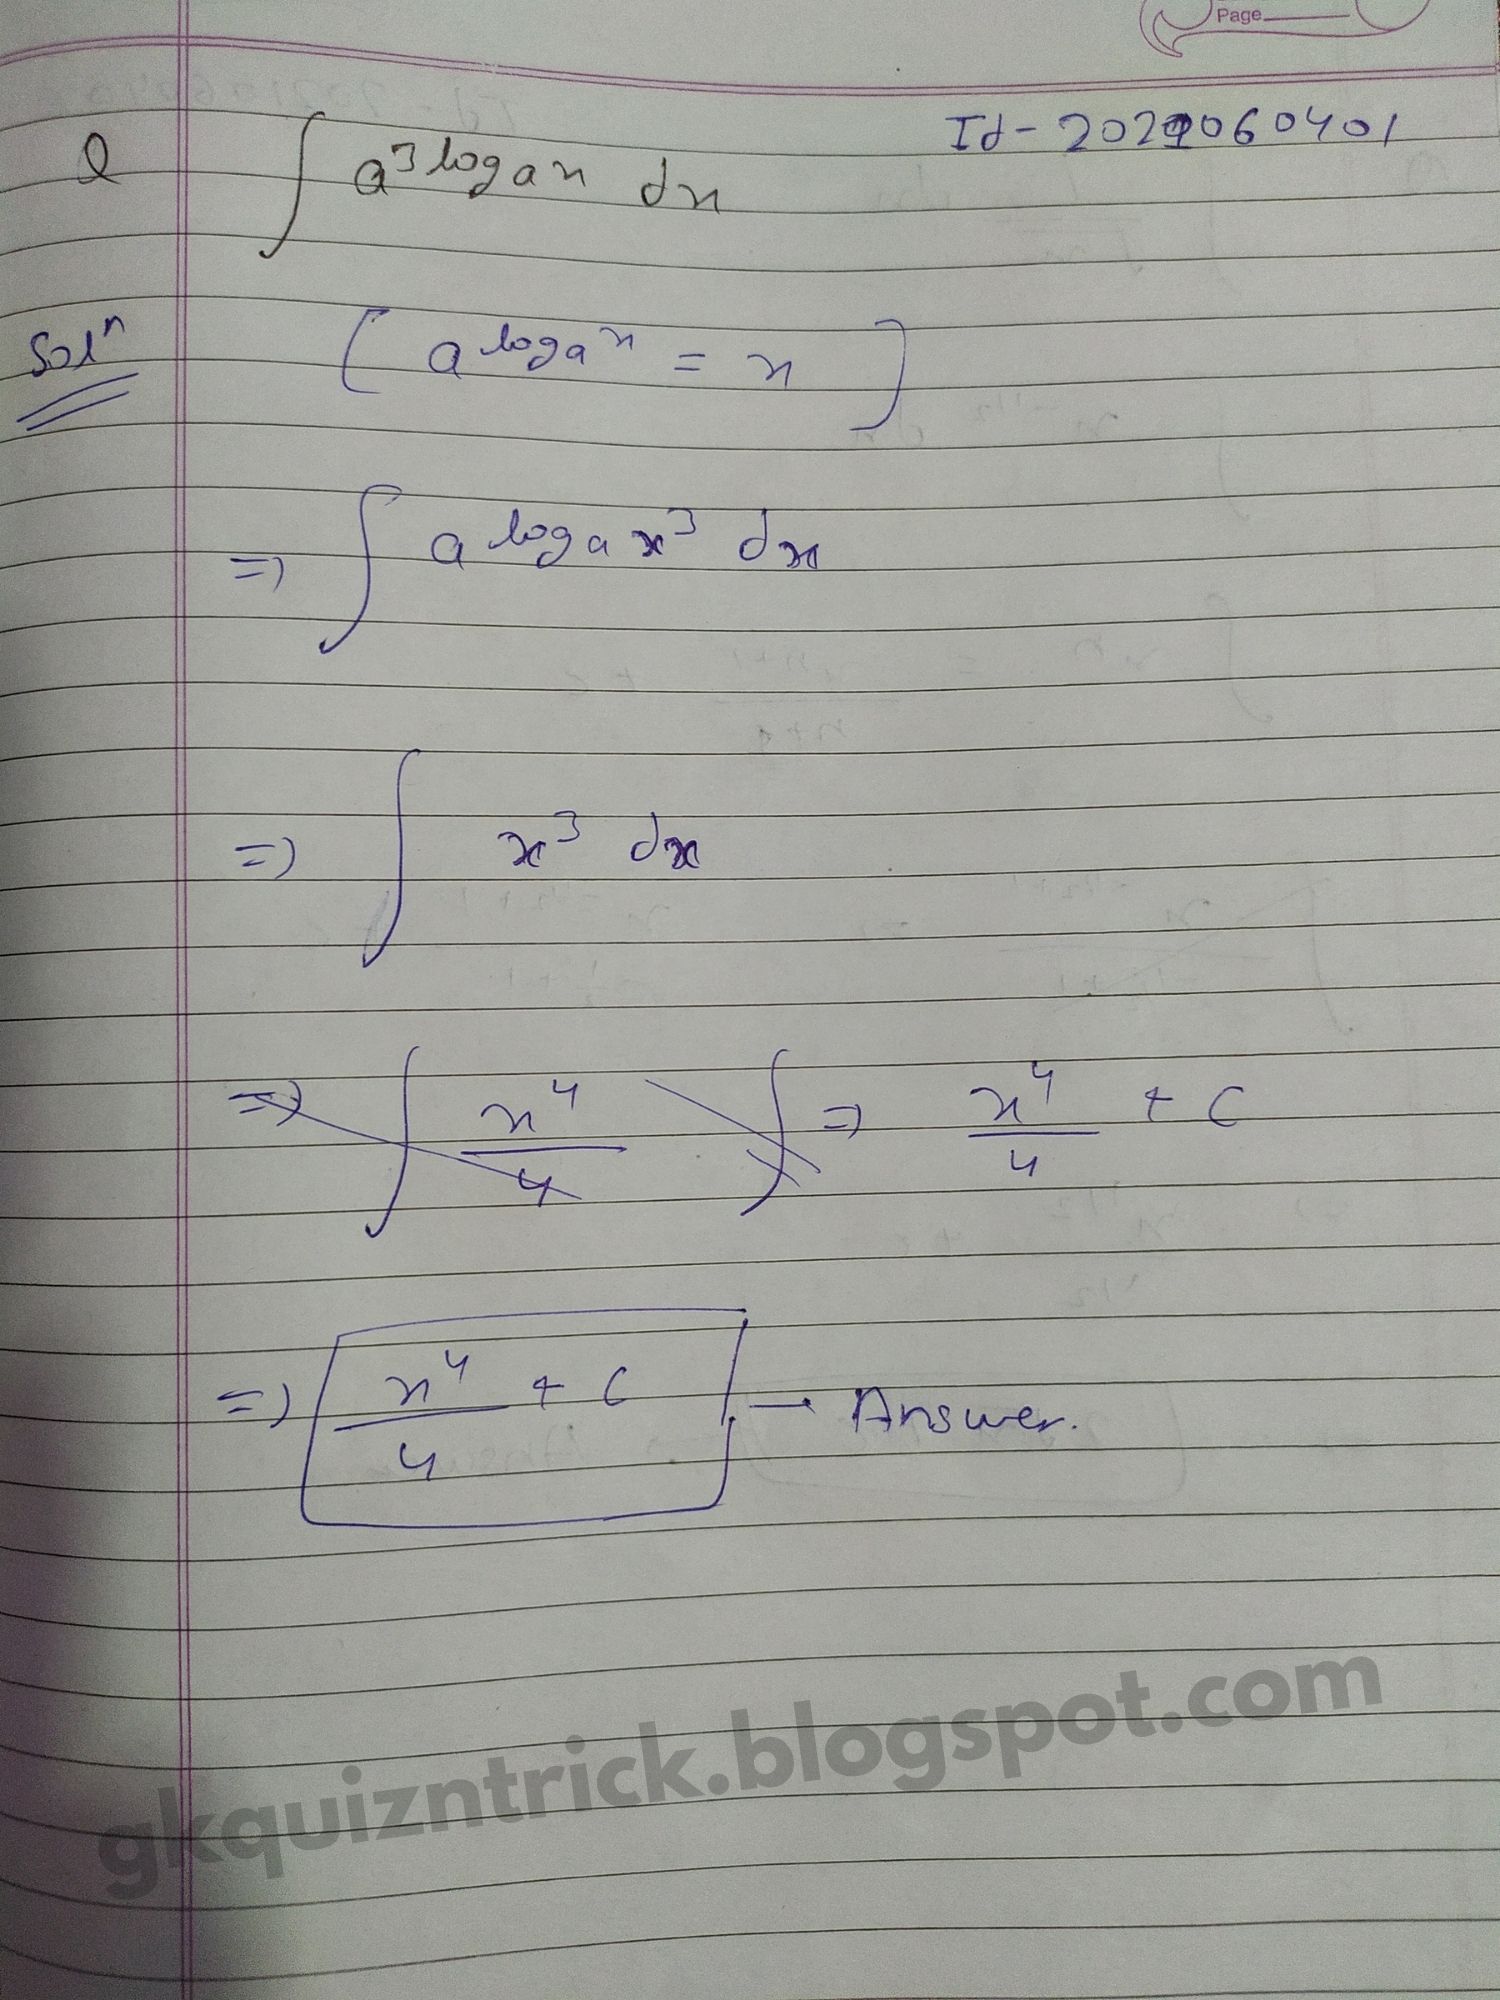 Page
Id-2021060401
Q ∫ a^3 log_a x dx
Solⁿ [ a^log_a x = x ]
=> ∫ a^log_a x^3 dx
=> ∫ x^3 dx
=> ∫ x^4/4 ∫ => x^4/4 + c
=> x^4/4 + c → Answer.
gkquizntrick.blogspot.com